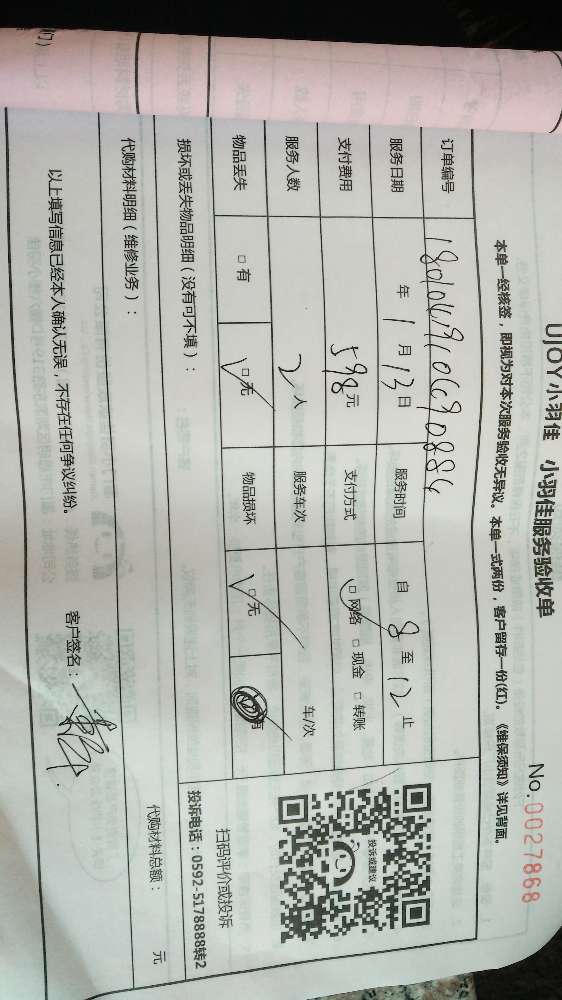 UJOY小羽佳 小羽佳服务验收单
No.0027868
本单一经核签，即视为对本次服务验收无异议。本单一式两份，客户留存一份(红)。《维保须知》详见背面。
订单编号
服务日期 年 1 月 13 日 服务时间 自 8 至 12 止
支付费用 598 元 支付方式 □ 网络 □ 现金 □ 转账
服务人数 2 人 服务车次 车/次
物品丢失 □ 有 □ 无 物品损坏 □ 无 有
投诉或建议
扫码评价或投诉
投诉电话：0592-5178888转2
损坏或丢失物品明细（没有可不填）：
代购材料明细（维修业务）：
代购材料总额： 元
以上填写信息已经本人确认无误，不存在任何争议纠纷。
客户签名：